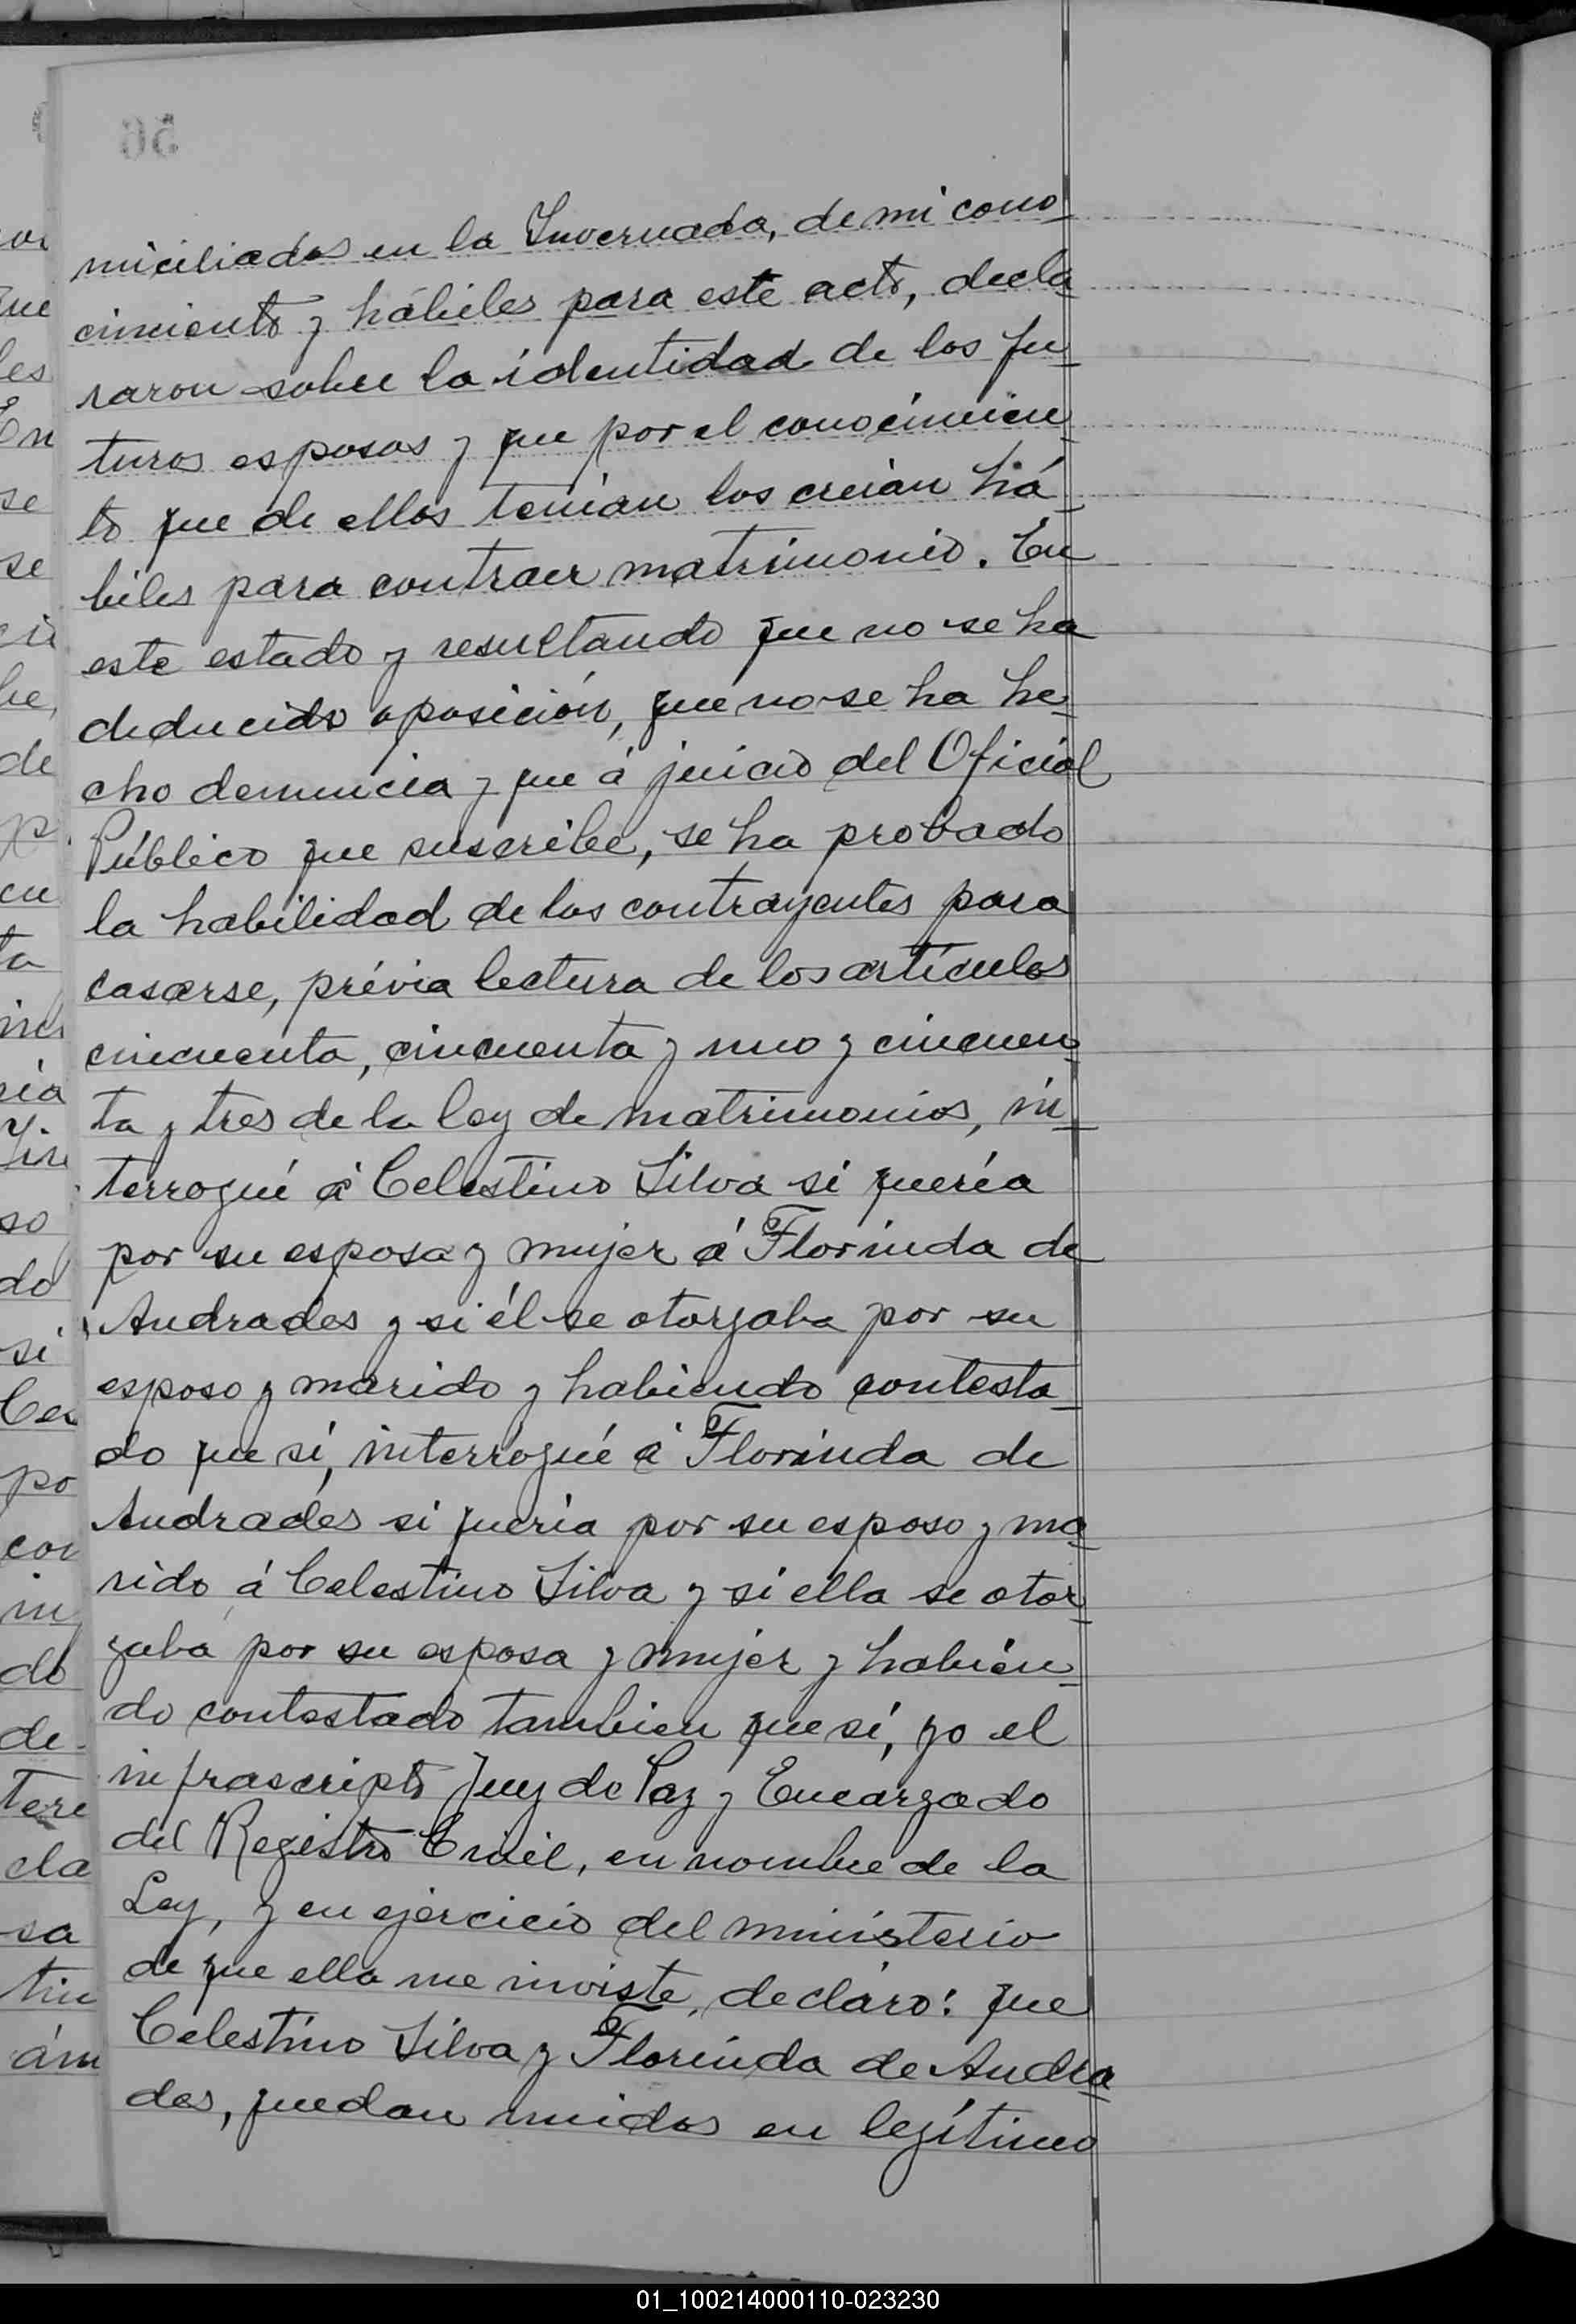 miciliados en la Invernada, de mi cono-
cimiento y hábiles para este acto, decla-
raron sobre la identidad de los fu-
turos esposos y que por el conocimien-
to que de ellos tenían los creían há-
biles para contraer matrimonio. En
este estado y resultando que no se ha
deducido oposición, que no se ha he-
cho denuncia y que á juicio del Oficial
Público que suscribe, se ha probado
la habilidad de los contrayentes para
casarse, prévia lectura de los artículos
cincuenta, cincuenta y uno y cincuen-
ta y tres de la ley de matrimonios, in-
terrogué á Celestino Silva si quería
por su esposa y mujer á Florinda de
Andrades y si él se otorgaba por su
esposo y marido y habiendo contesta-
do que sí, interrogué á Florinda de
Andrades si quería por su esposo y ma-
rido á Celestino Silva y si ella se otor-
gaba por su esposa y mujer y habien-
do contestado tambien que sí, yo el
infrascripto Juez de Paz y Encargado
del Registro Civil, en nombre de la
Ley, y en ejercicio del ministerio
de que ella me inviste, declaro: que
Celestino Silva y Florinda de Andra-
des, quedan unidos en legítimo
01_100214000110-023230